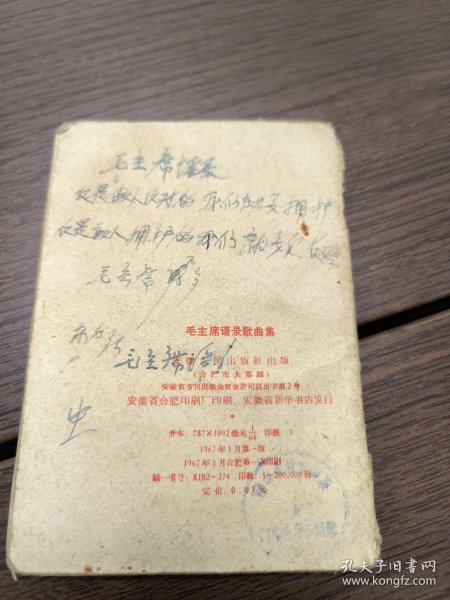 毛主席语录
反是敌人反对的 我们就要拥护
反是敌人拥护的 我们就要反
毛主席
毛主席语录歌曲集
民出版社出版
(合肥市大寨路)
安徽省书刊出版业营业許可証出字第2号
安徽省合肥印刷厂印刷 安徽省新华书店发行
开本:787×1092毫米 1/64 印張:1
1967年1月第一版
1967年1月合肥第一次印刷
統一書号:8102·374 印数:1—200,000册
定价:0.07元
孔夫子旧书网
www.kongfz.com